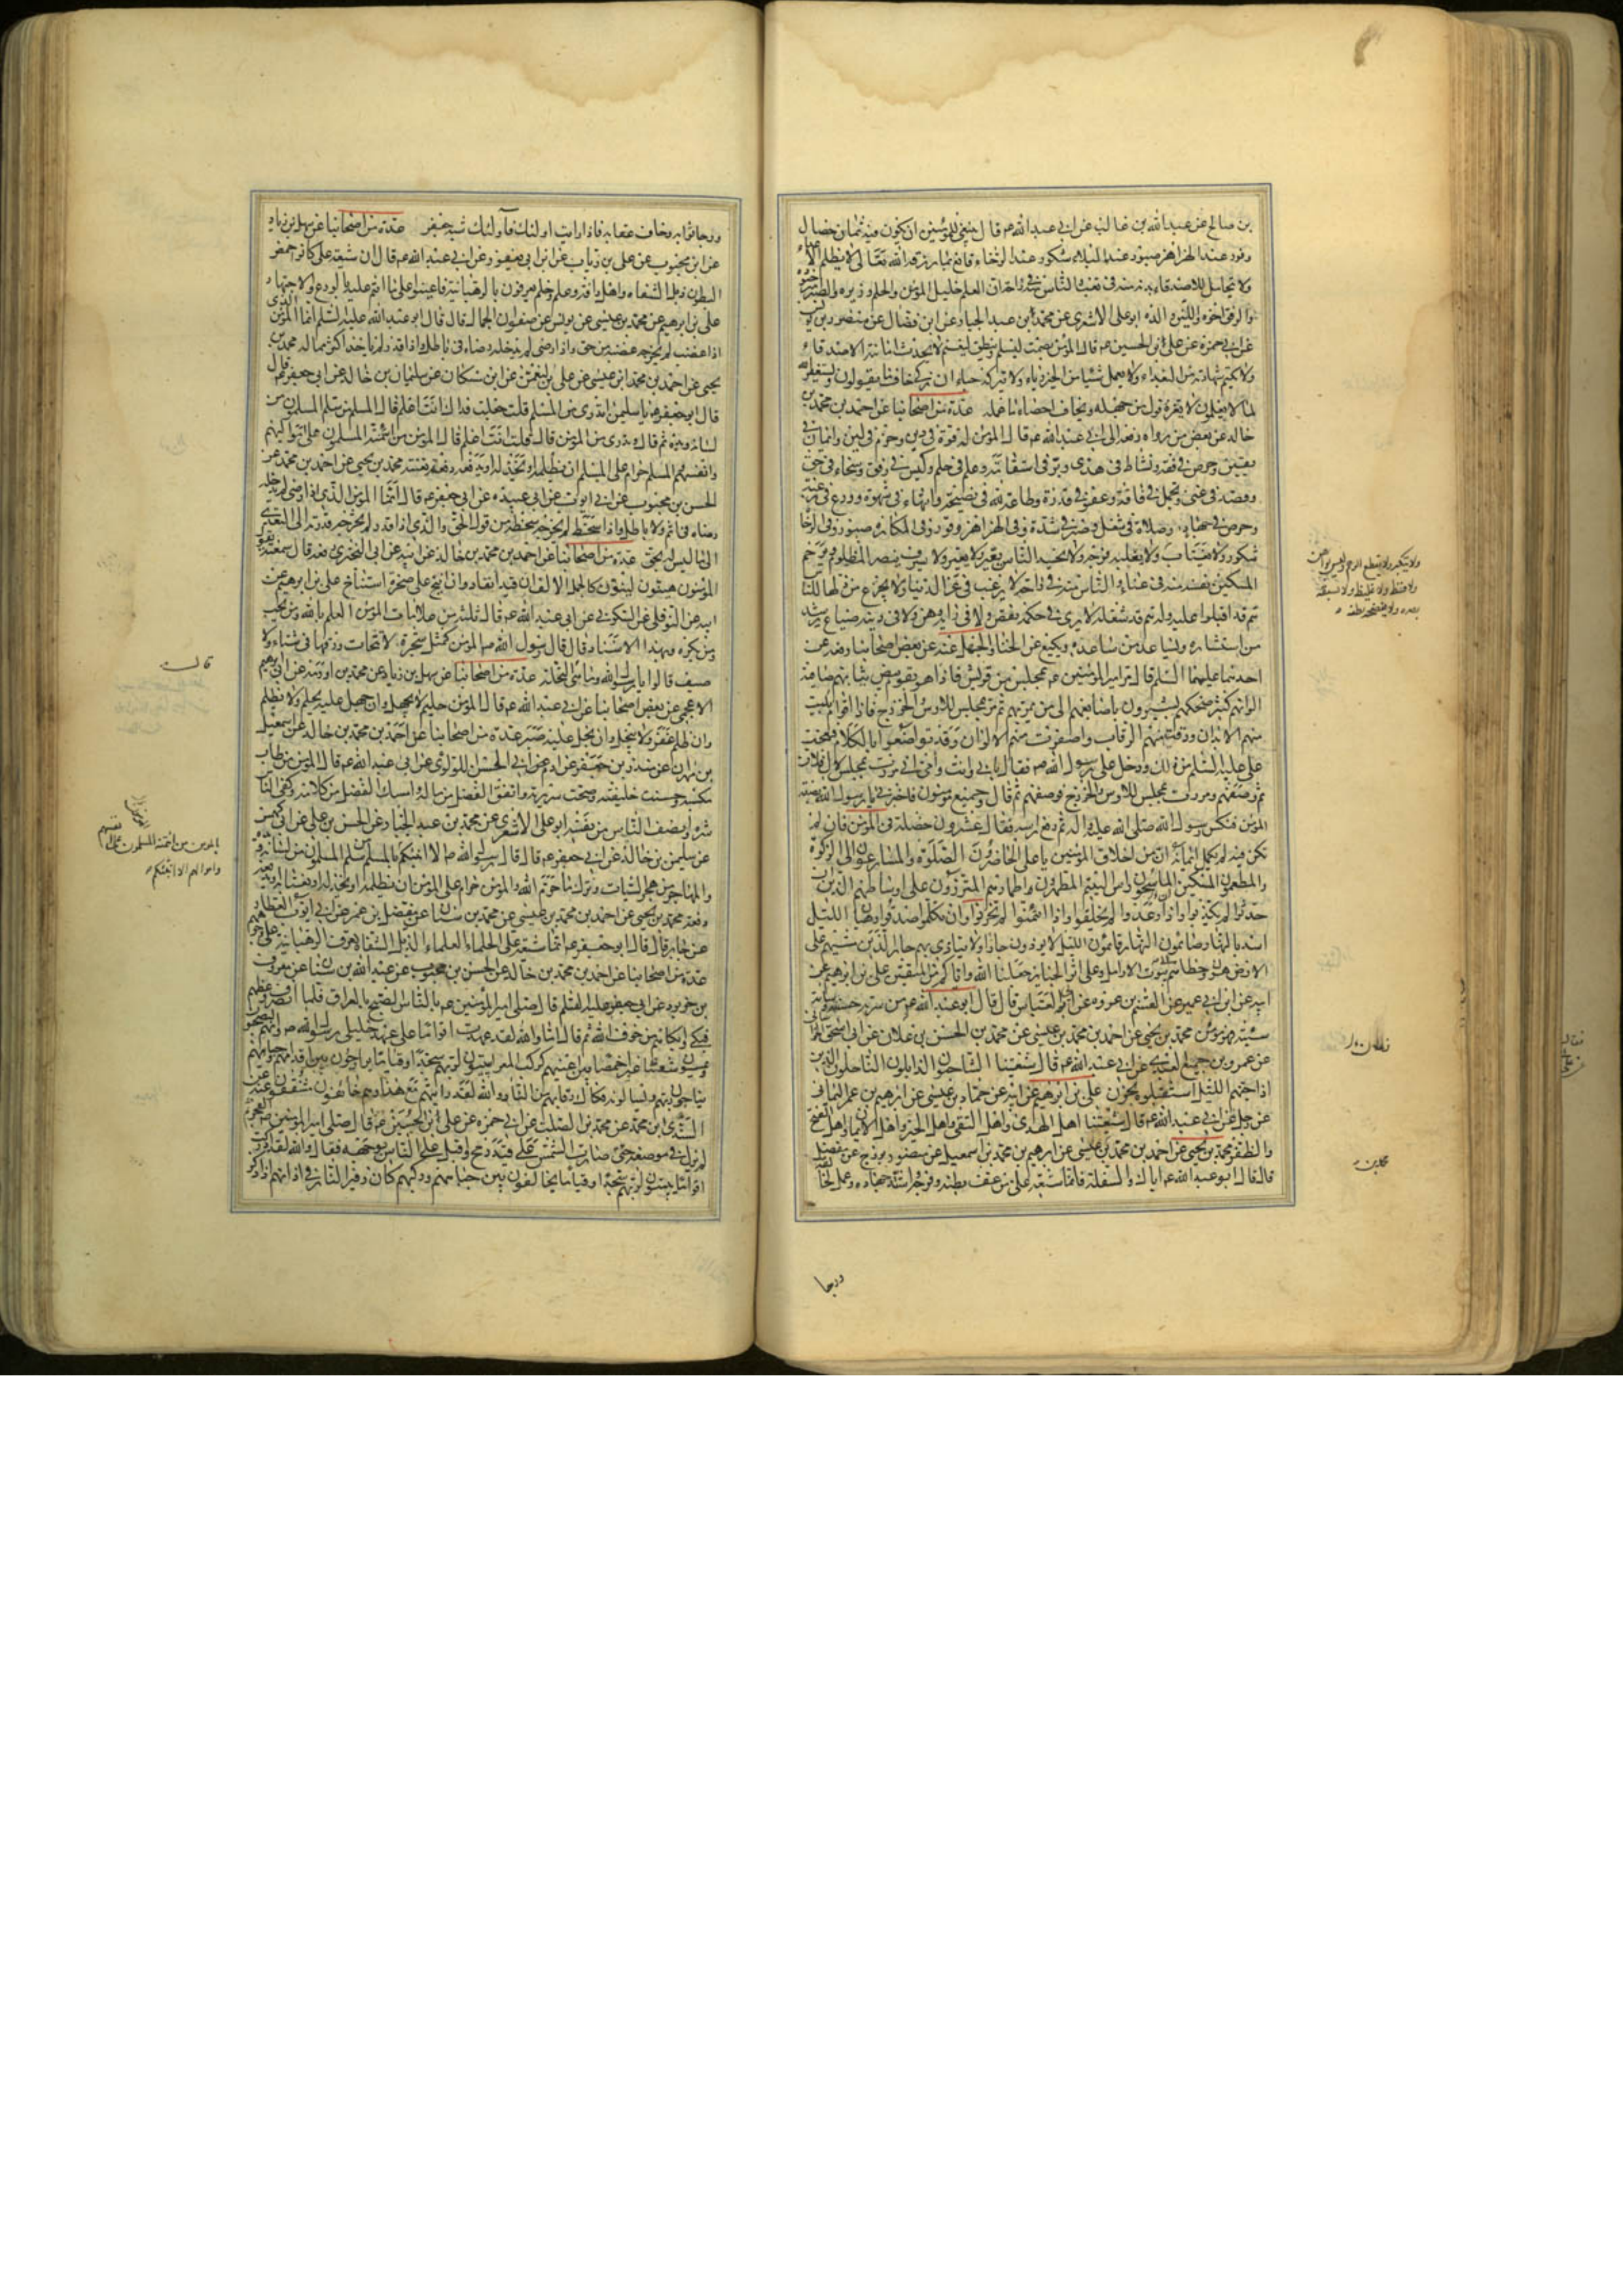 بن صالح عن عبد الله بن غالب عن ابي عبد الله عم قال ينبغي للمؤمنين ان يكون فيه ثمان خصال
وقور عند الهزاهز صبور عند البلاء شكور عند الرخاء قانع بما رزقه الله تعالى لا يظلم الاعداء
ولا يتحامل للاصدقاء بدنه منه في تعب والناس منه في راحة ان العلم خليل المؤمن والحلم وزيره والصبر امير جنوده
والرفق اخوه واللين والده ابو على الاشعري عن محمد بن عبد الجبار عن ابن فضال عن منصور بن يونس
عن ابي حمزة عن علي بن الحسين عم قال المؤمن يصمت ليسلم وينطق ليغنم لا يحدث امانته الاصدقاء
ولا يكتم شهادته من البعداء ولا يعمل شيئا من الخير رياء ولا يتركه حياء ان زكى خاف مما يقولون ويستغفر الله
لما لا يعلمون لا يغره قول من جهله ويخاف احصاء ما عمله عدة من اصحابنا عن احمد بن محمد بن
خالد عن بعض من رواه رفعه الى ابي عبد الله عم قال المؤمن له قوة في دين وحزم في لين وايمان في
يقين وحرص في فقه ونشاط في هدى وبر في استقامة وعلم في حلم وكيس في رفق وسخاء في حق
وقصد في غنى وتجمل في فاقة وعفو في قدرة وطاعة لله في نصيحة وانتهاء في شهوة وورع في رغبة
وحرص في جهاد وصلاة في شغل وصبر في شدة وفي الهزاهز وقور وفي المكاره صبور وفي الرخاء
شكور ولا يغتاب
المسكين نفسه منه في عناء والناس منه في راحة لا يرغب في عز الدنيا ولا يجزع من ذلها للناس
هم قد اقبلوا عليه وله هم قد شغله لا يرى في حكمه نقص ولا في رايه وهن ولا في دينه ضياع يرشد
من استشاره ويساعد من ساعده ويكيع عن الخنا والجهل عنه عن بعض اصحابنا رفعه عن
احدهما عليهما السلم قال مر امير المؤمنين عم بمجلس من قريش فاذا هو بقوم بيض ثيابهم صافية
الوانهم كثير ضحكهم يشيرون باصابعهم الى من يمر بهم ثم مر بمجلس للاوس والخزرج فاذا اقوام بليت
منهم الابدان ودقت منهم الرقاب واصفرت منهم الالوان وقد تواضعوا بالكلام فعجب
على عليه السلم من ذلك ودخل على رسول الله ص فقال بابي انت وامي اني مررت بمجلس لآل فلان
ثم وصفهم ومررت بمجلس للاوس والخزرج فوصفهم ثم قال وجميع مؤمنون فاخبرني يا رسول الله بصفة
المؤمن فنكس رسول الله صلى الله عليه واله ثم رفع راسه فقال عشرون خصلة في المؤمن فان لم
تكن فيه لم يكمل ايمانه ان من اخلاق المؤمنين يا على الحاضرون الصلوة والمسارعون الى الزكوة
والمطعمون المسكين الماسحون راس اليتيم المطهرون اطمارهم المتزرون على اوساطهم الذين ان
حدثوا لم يكذبوا واذا وعدوا لم يخلفوا واذا ائتمنوا لم يخونوا وان تكلموا صدقوا رهبان الليل
اسد بالنهار صائمون النهار قائمون الليل لا يؤذون جارا ولا يتاذى بهم جار الذين مشيهم على
الارض هون وخطاهم الى بيوت الارامل وعلى اثر الجنائز جعلنا الله واياكم من المتقين على بن ابرهيم عن
ابيه عن ابن ابي عمير عن القسم بن عروة عن ابي العباس قال قال ابو عبد الله عم من سرته حسنته وساءته
سيئته فهو مؤمن محمد بن يحيى عن احمد بن محمد بن عيسى عن محمد بن الحسن بن علان عن ابي اسحق الخراساني
عن عمرو بن جميع العبدي عن ابي عبد الله عم قال شيعتنا الشاحبون الذابلون الناحلون الذين
اذا جنهم الليل استقبلوه بحزن على بن ابرهيم عن ابيه عن حماد بن عيسى عن ابرهيم بن عمر اليماني
عن رجل عن ابي عبد الله عم قال شيعتنا اهل الهدى واهل التقى واهل الخير واهل الايمان واهل الفتح
والظفر محمد بن يحيى عن احمد بن محمد بن عيسى عن محمد بن اسمعيل عن منصور بزرج عن مفضل
قال قال ابو عبد الله عم اياك والسفلة فانما شيعة على من عف بطنه وفرجه واشتد جهاده وعمل لخالقه
ورجا
قال
ورجا ثوابه وخاف عقابه فاذا رايت اولئك فاولئك شيعة جعفر عدة من اصحابنا عن سهل بن زياد
عن ابن محبوب عن علي بن رئاب عن ابن ابي يعفور عن ابي عبد الله عم قال ان شيعة على كانوا خمص
البطون ذبل الشفاه واهل رافة وعلم وحلم يعرفون بالرهبانية فاعينوا على ما انتم عليه بالورع والاجتهاد
على بن ابرهيم عن محمد بن عيسى عن يونس عن صفوان الجمال قال قال ابو عبد الله عليه السلم انما المؤمن الذي
اذا غضب لم يخرجه غضبه من حق واذا رضى لم يدخله رضاه في باطل واذا قدر لم ياخذ اكثر مما له محمد بن
يحيى عن احمد بن محمد بن عيسى عن على بن النعمان عن ابن مسكان عن سليمان بن خالد عن ابي جعفر عم قال
قال ابو جعفر عم يا سليمن اتدري من المسلم قلت جعلت فداك انت اعلم قال المسلم من سلم المسلمون من
لسانه ويده ثم قال وتدري من المؤمن قال قلت انت اعلم قال المؤمن من ائتمنه المسلمون على اموالهم
وانفسهم والمسلم حرام على المسلم ان يظلمه او يخذله او يدفعه دفعة تعنته محمد بن يحيى عن احمد بن محمد عن
الحسن بن محبوب عن ابي ايوب عن ابي عبيدة عن ابي جعفر عم قال انما المؤمن الذي اذا رضى لم يدخله
رضاه في اثم ولا باطل واذا سخط لم يخرجه سخطه من قول الحق والذي اذا قدر لم تخرجه قدرته الى التعدي
الى ما ليس له بحق عدة من اصحابنا عن احمد بن محمد بن خالد عن ابيه عن ابي البختري رفعه قال سمعته يقول
المؤمنون هينون لينون كالجمل الالف ان قيد انقاد وان انيخ على صخرة استناخ على بن ابرهيم عن
ابيه عن النوفلي عن السكوني عن ابي عبد الله عم قال ثلثة من علامات المؤمن العلم بالله ومن يحب
ومن يكره وبهذا الاسناد قال قال رسول الله ص المؤمن كمثل شجرة لا يتحات ورقها في شتاء ولا
صيف قالوا يا رسول الله وما هي قال النخلة عدة من اصحابنا عن سهل بن زياد عن محمد بن اورمة عن ابي ابرهيم
الاعجمي عن بعض اصحابنا عن ابي عبد الله عم قال المؤمن حليم لا يجهل وان جهل عليه يحلم ولا يظلم
وان ظلم غفر ولا يبخل وان بخل عليه صبر عدة من اصحابنا عن احمد بن محمد بن خالد عن اسمعيل
بن مهران عن منذر بن جيفر عن ادم ابي الحسين اللؤلؤي عن ابي عبد الله عم قال المؤمن من طاب
مكسبه وحسنت خليقته وصحت سريرته وانفق الفضل من ماله وامسك الفضل من كلامه وكفى الناس
شره وانصف الناس من نفسه ابو على الاشعري عن محمد بن عبد الجبار عن الحسن بن على عن ابي كهمس
عن سليمن بن خالد عن ابي جعفر عم قال قال رسول الله ص الا انبئكم بالمسلم من سلم المسلمون من لسانه ويده
والمهاجر من هجر السيئات وترك ما حرم الله والمؤمن حرام على المؤمن ان يظلمه او يخذله او يغتابه او يدفعه
دفعة محمد بن يحيى عن احمد بن محمد بن عيسى عن محمد بن سنان عن مفضل بن عمر عن ابي ايوب العطار
عن جابر قال قال ابو جعفر عم انما شيعة على الحلماء العلماء الذبل الشفاه تعرف الرهبانية على وجوههم
عدة من اصحابنا عن احمد بن محمد بن خالد عن الحسن بن محبوب عن عبد الله بن سنان عن معروف
بن خربوذ عن ابي جعفر عليه السلم قال صلى امير المؤمنين عم بالناس الصبح بالعراق فلما انصرف وعظهم
فبكى وابكاهم من خوف الله ثم قال اما والله لقد عهدت اقواما على عهد خليلي رسول الله ص وانهم ليصبحون
ويمسون شعثا غبرا خمصا بين اعينهم كركب المعزى يبيتون لربهم سجدا وقياما يراوحون بين اقدامهم وجباههم
يناجون ربهم ويسالونه فكاك رقابهم من النار والله لقد رايتهم مع هذا وهم خائفون مشفقون عنه عن
السندي بن محمد عن محمد بن الصلت عن ابي حمزة عن على بن الحسين عم قال صلى امير المؤمنين عم الفجر ثم
لم يزل في موضعه حتى صارت الشمس على قيد رمح واقبل على الناس بوجهه فقال والله لقد ادركت
اقواما يبيتون لربهم سجدا وقياما يخالفون بين جباههم وركبهم كان زفير النار في اذانهم اذا ذكر